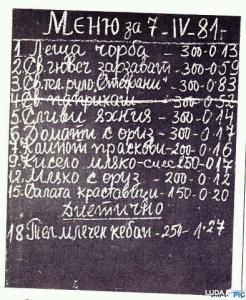 Меню за 7-IV-81г.
1. Леща чорба 300-0 13
2. Св. гювеч зарзават 300-0 59
3. Св. тел. руло „Стефани" 300-0 83
4. Св. паприкаш 300-0 52
5. Сливи яхния 300-0 14
6. Домати с ориз 300-0 17
7. Компот праскови 200-0 16
9. Кисело мляко 150-0 17
12. Мляко с ориз 200-0 12
15. Салата краставици 150-0 20
Диетично
18. Тел. млечен кебап 250-1 27
LUDA
PIC